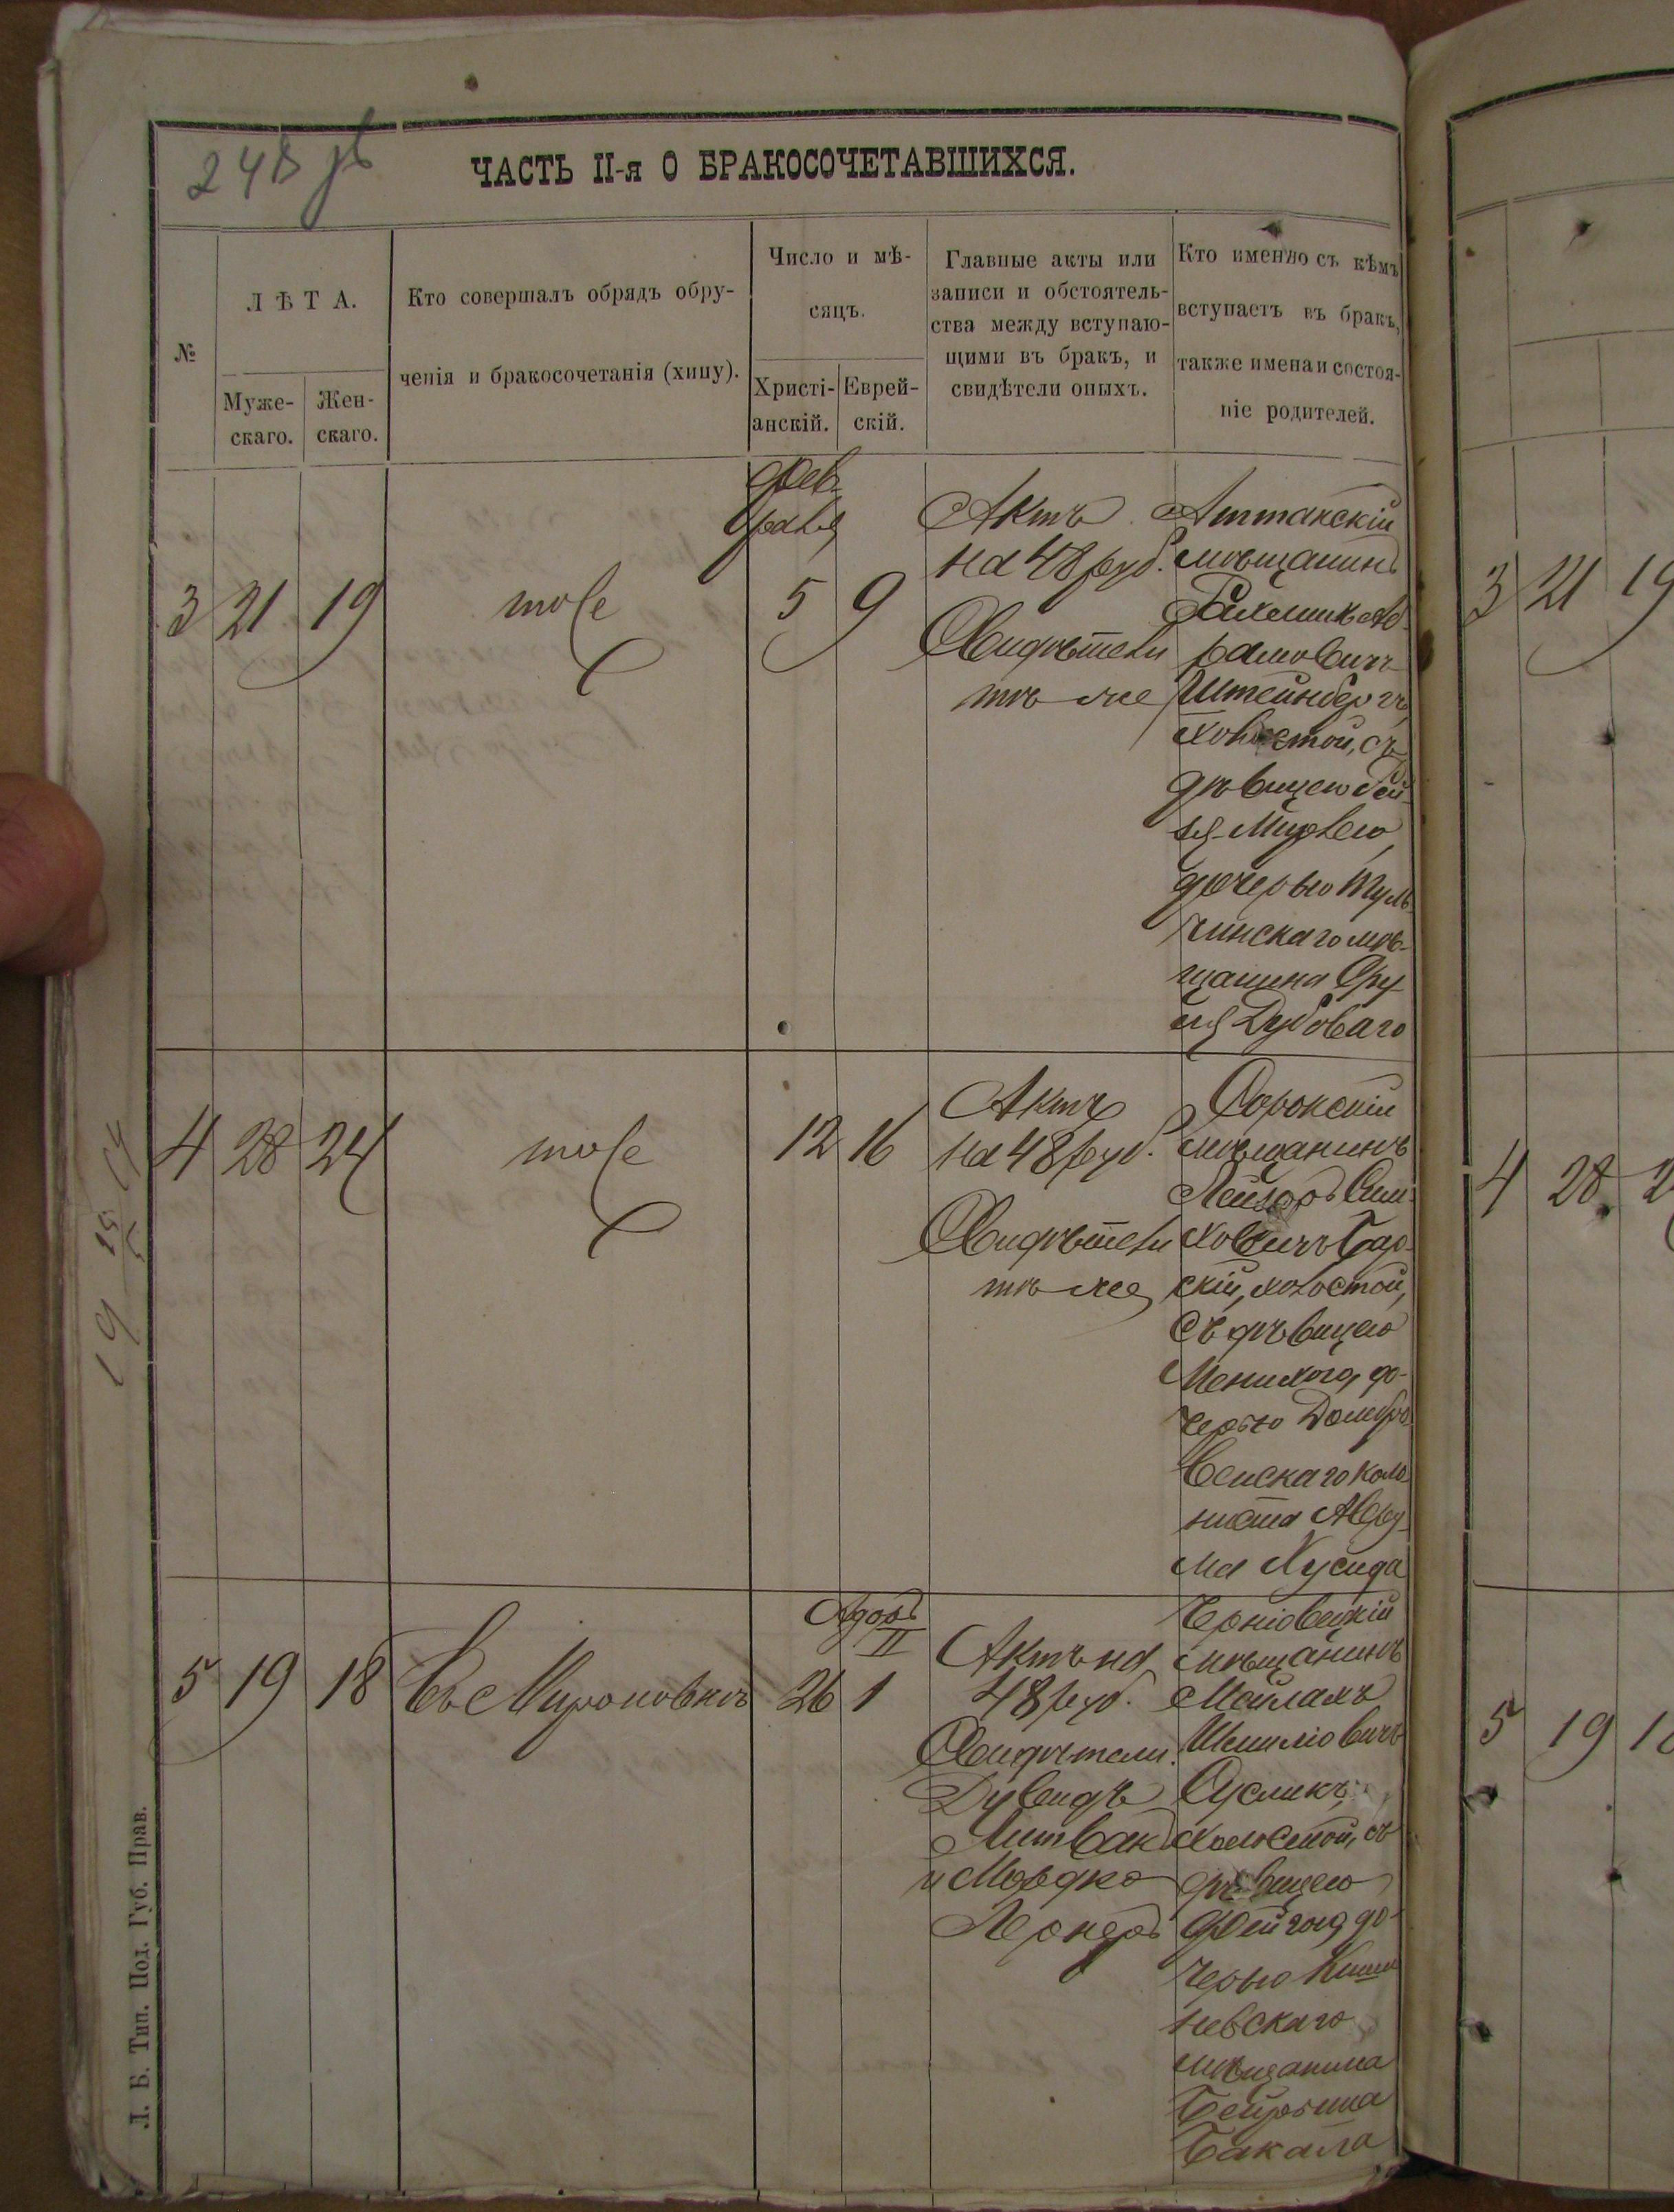 ЧАСТЬ II-я О БРАКОСОЧЕТАВШИХСЯ.
№
ЛѢТА.
Муже-
скаго.
Жен-
скаго.
Кто совершалъ обрядъ обру-
ченія и бракосочетанія (хипу).
Число и мѣ-
сяцъ.
Христі-
анскій.
Еврей-
скій.
Главные акты или
записи и обстоятель-
ства между вступаю-
щими въ бракъ, и
свидѣтели оныхъ.
Кто именно съ кѣмъ
вступаетъ въ бракъ,
также имена и состоя-
ніе родителей.
3
21
19
тоже
Фев-
раля
5
9
Актъ
на 48 руб.
Свидѣтели
тѣ же
Аттакскій
мѣщанинъ
Аб-
рамовичъ
Штейнбергъ
холостой, съ
дѣвицею Бей-
ля-Мирлею
дочерью Туль-
чинскаго мѣ-
щанина Сру-
ля Дубоваго
4
28
24
тоже
12
16
Актъ
на 48 руб.
Свидѣтели
тѣ же
Сорокскій
мѣщанинъ
Лейзоръ Сим-
ховичъ Бар-
скій, холостой,
съ дѣвицею
до-
черью Домбро-
венскаго коло-
ниста Авру-
ма Хусида
5
19
18
Въ Мироновкѣ
26
Адоръ
II
1
Актъ на
48 руб.
Свидѣтели
Дувидъ
Литвакъ
и Мордко
Лернеръ
мѣщанинъ
Мейлахъ
Шмилювичъ
Сусликъ,
холостой, съ
дѣвицею
Фейгою до-
черью Киши
невскаго
мѣщанина
Бейрыша
Бакала
Л. Б. Тип. Под. Губ. Прав.
3 21 19
4 28 2
5 19 1